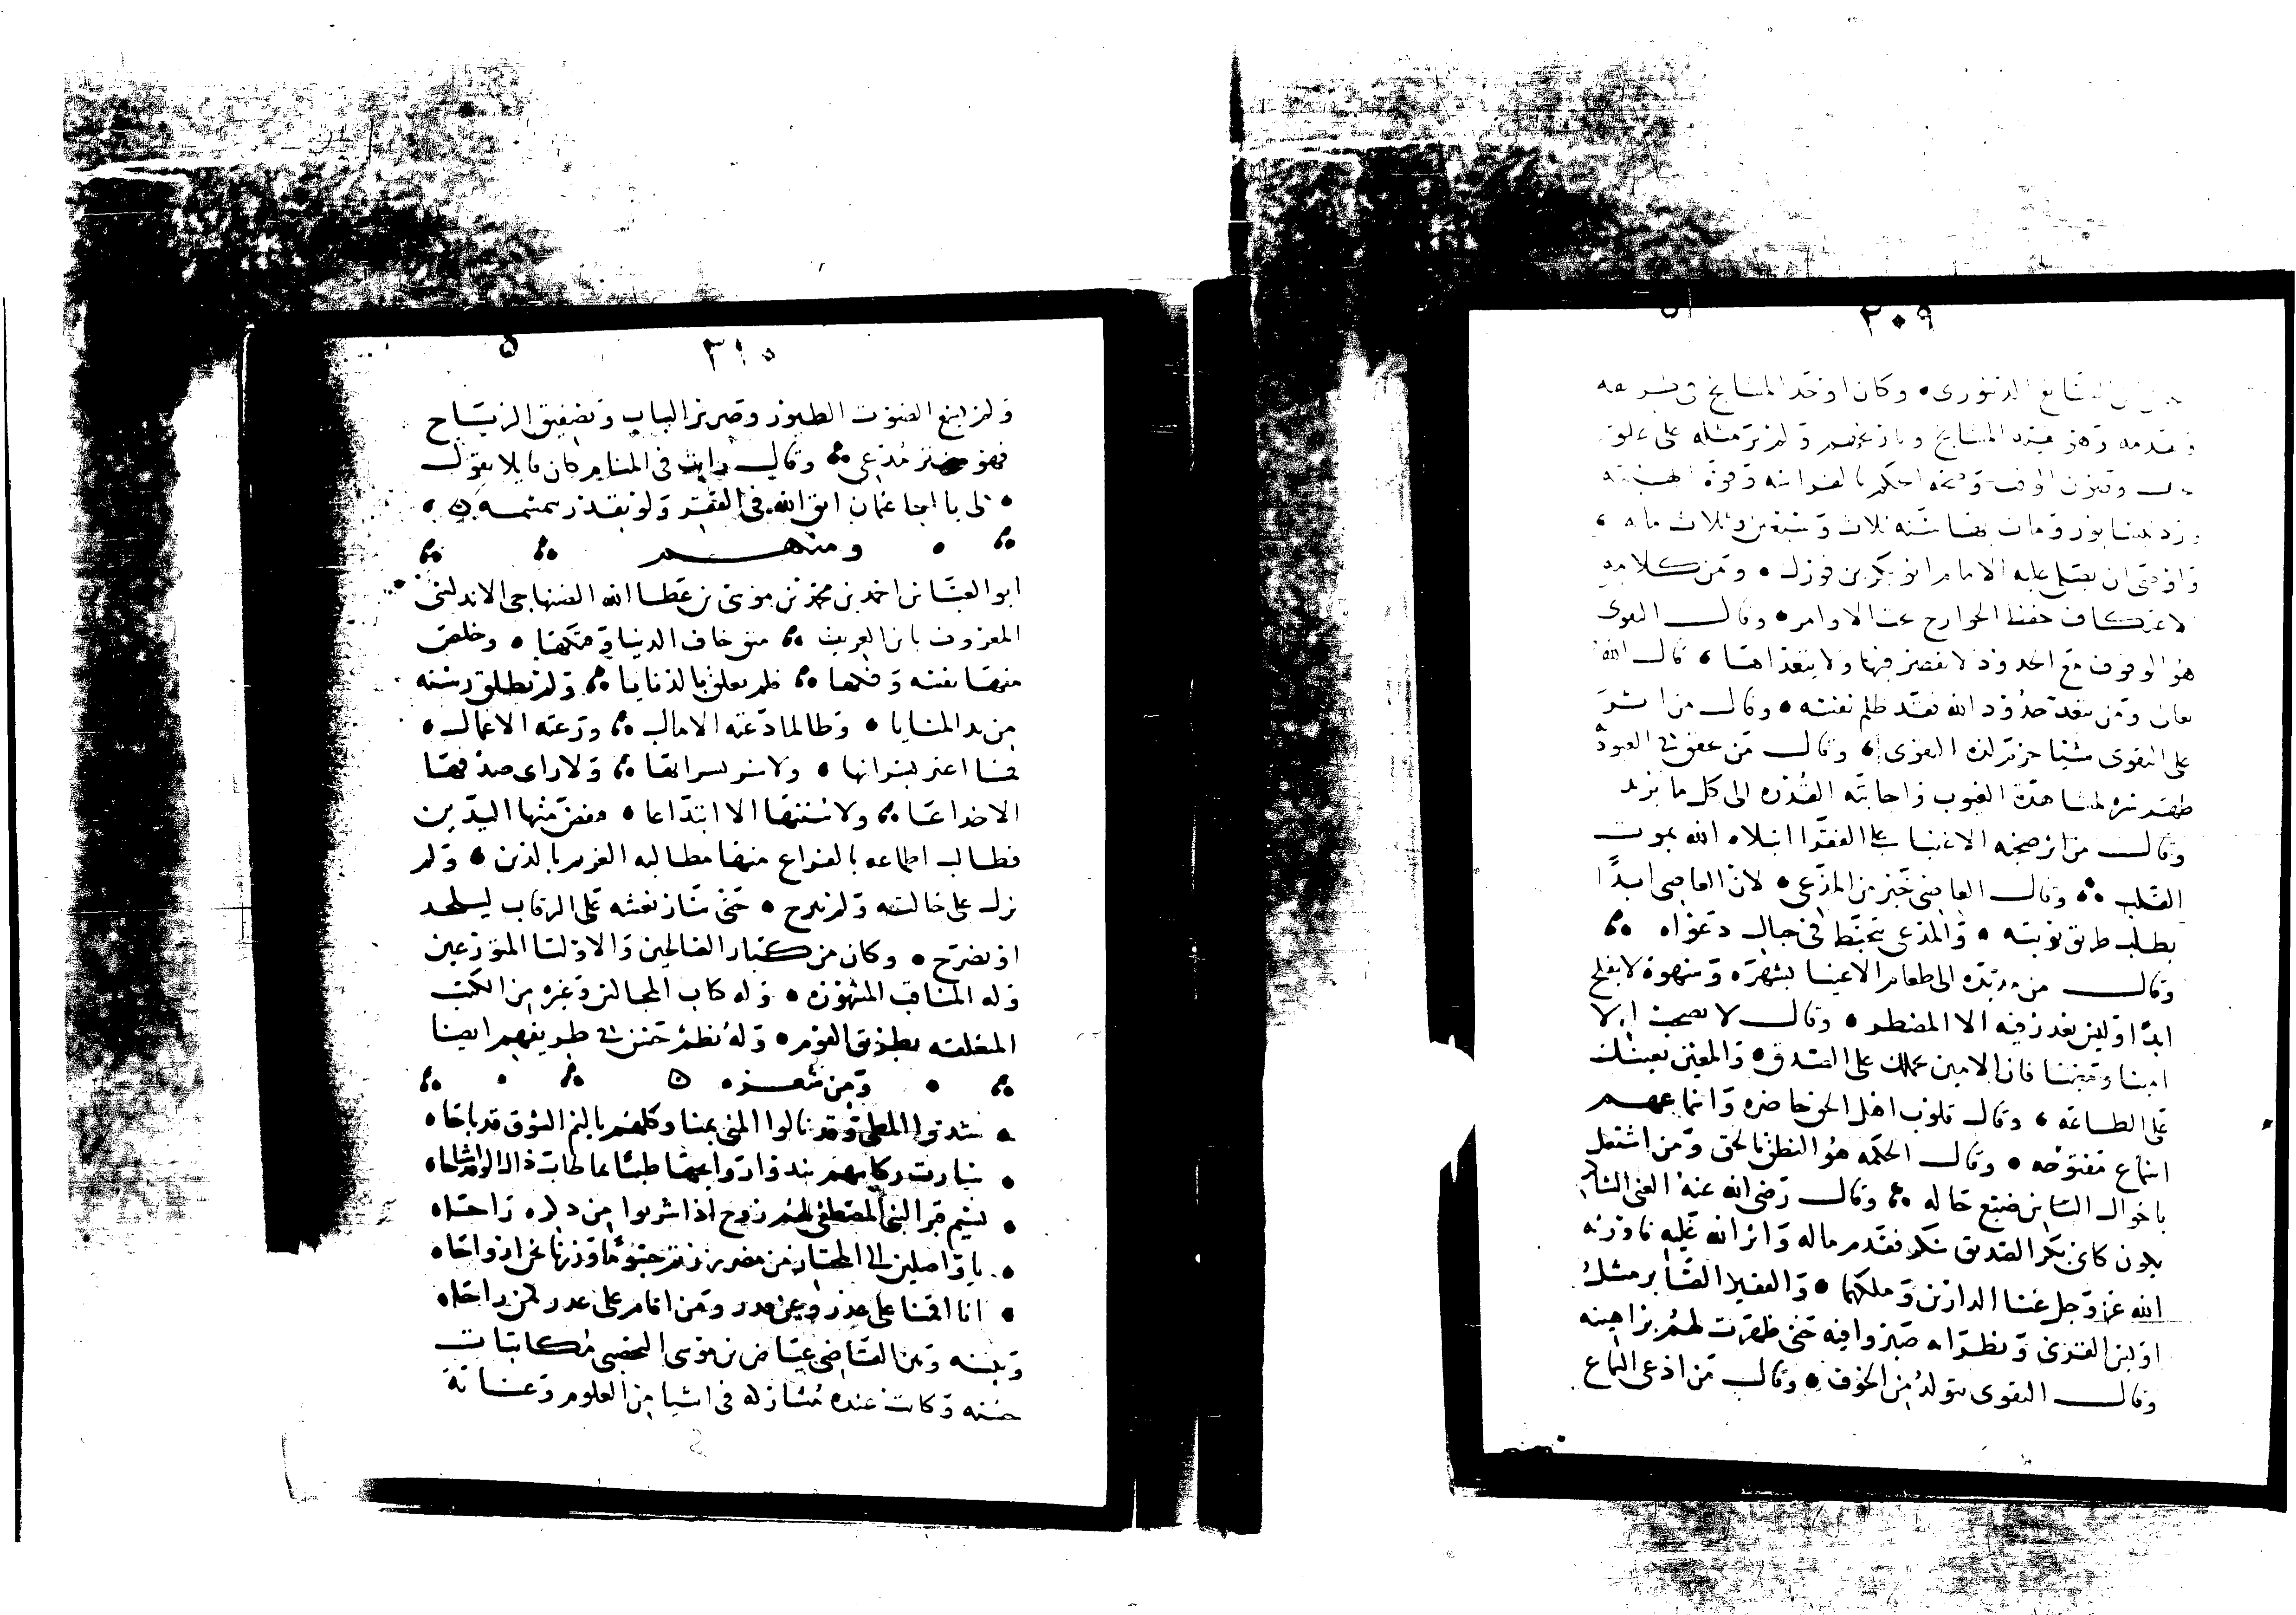 ٣٠٩
وكان اوحد المشايخ في
المشايخ ولم ير مثله على علو
وقوة
ورد نيسابور ومات بها سنة ثلاث وسبعين وثلاث مايه
واوصى ان يصلي عليه الامام ابو بكر بن فورك • ومن كلامه
الاعتكاف حفظ الجوارح تحت الاوامر • وقال التقوى
هو الوقوف مع الحدود لا يقصر فيها ولا يتعداها • قال الله
تعالى ومن يتعد حدود الله فقد ظلم نفسه • وقال من اثر
على التقوى شيئا حرم لذة التقوى • وقال من تحقق في العبودية
ظهر سره لمشاهدة الغيوب واجابته القدره الى كل ما يريد
وقال من اثر صحبه الاغنيا على الفقرا ابتلاه الله بموت
القلب • وقال العاصي خير من المدعي • لان العاصي ابدا
يطلب طريق توبته • والمدعي يتخبط في حبال دعواه
وقال من مد يده الى طعام الاغنيا بشره وشهوة لا يفلح
ابدا وليس يعذر فيه الا المضطر • وقال لا تصحب الا
امينا او معينا فان الامين يحملك على الصدق • والمعين يعينك
على الطاعه • وقال قلوب اهل الحق حاضره واسماعهم
اسماع مفتوحه • وقال الحكمه هو النطق بالحق ومن اشتغل
باحوال الناس ضيع حاله • وقال رضي الله عنه الغني الشاكر
يكون كابي بكر الصديق شكر فقدم ماله واثر الله عليه فاورثه
الله عز وجل غنا الدارين وملكهما • والفقير الصابر مثل
اويس القرني ونظراه صبروا فيه حتى ظهرت لهم براهينه
وقال التقوى يتولد من الخوف • وقال من ادعى السماع
٣١٠
ولم يسمع اصوت الطيور وصرير الباب وتصفيق الرياح
فهو مفتر مدعي • وقال رايت في المنام كان قايلا يقول
• لي يا ابا عثمان اتق الله في الفقر ولو بقدر سمسمه •
ومنهم
ابو العباس احمد بن محمد بن موسى بن عطا الله الصنهاجي الاندلسي
المعروف بابن العريف • ممن خاف الدنيا • وخلص
منها نفسه وفكها • فلم يعلق بالدنايا • ولم يطلق رسنه
من يد المنايا • وطالما دعته الامال • ورعته الاعمال •
فما اغتر • ولا سر بسرابها • ولا راى صدقها
الا خداعا • ولا سنتها الا ابتداعا • ونفض منها اليدين
فطالب اطماعه بالفراغ منها مطالبه الغريم بالدين • ولم
يزل على حالته ولم يبرح • حتى سار نعشه على الرقاب ليلحد
او يضرح • وكان من كبار الصالحين والاوليا المتورعين
وله المناقب المشهوره • وله كتاب المجالس وغيره من الكتب
المتعلقه بطريق القوم • وله نظم حسن في طريقهم ايضا
ومن شعره
• شدوا المطي وقد نالوا المنى بمنا وكلهم باليم الشوق قد باحا
• سارت ركابهم تندى روايحها طيبا بما طاب ذاك الوفد اشباحا
• نسيم قبر النبي المصطفى لهم روح اذا شربوا من ذكره راحا
• يا واصلين الى المختار من مضر زرتم جسوما وزرنا نحن ارواحا
• انا اقمنا على عذر وعن قدر ومن اقام على عذر كمن راحا
وبينه وبين القاضي عياض بن موسى اليحصبي مكاتبات
حسنه وكانت عنده مشاركه في اشيا من العلوم وعناية